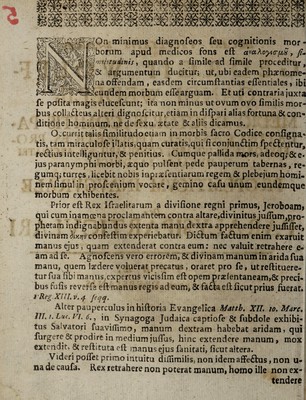 NOn minimus diagnoseos seu cognitionis mor
borum apud medicos fons est ἀναλογισμὸς, si-
militudinis, quando a simile ad simile proceditur,
& argumentum ducitur, ut, ubi eadem phænome-
na offendam, easdem circumstantias essentiales, ibi
eundem morbum esse arguam. Et uti contraria juxta
se posita magis elucescunt; ita non minus ut ovum ovo similis mor
bus collacteus alteri dignoscitur, etiam in dispari alias fortuna & con-
ditione hominum, ne de sexu ætate & aliis dicamus.
O. currit talis similitudo etiam in morbis sacro Codice consigna-
tis, tam miraculose illatis, quam curatis, qui si conjunctim spectentur,
rectius intelliguntur, & penitius. Cumque pallida mors, adeoq; & e-
jus paranymphi morbi, æquo pulsent pede pauperum tabernas, re-
gumq; turres, licebit nobis inpræsentiarum regem & plebejum homi-
nem simul in proscenium vocare, gemino casu unum eundemque
morbum exhibentes.
Prior est Rex Israelitarum a divisione regni primus, Jeroboam,
qui cum inamœna proclamantem contra altare, divinitus jussum, pro-
phetam indignabundus extenta manu dextra apprehendere jussisset,
divinam & rei consistim experiebatur. Dictum factum enim exaruit
manus ejus, quam extenderat contra eum: nec valuit retrahere e-
am ad se. Agnoscens vero errorem, & divinam manum in arida sua
manu, quem lædere voluerat precatur, oraret pro se, ut restituere-
tur sua sibi manus, expertus vicissim est opem præsentaneam, & preci-
bus fusis reversa est manus regis ad eum, & facta est sicut prius fuerat.
1 Reg. XIII. v. 4 seqq.
Alter pauperculus in historia Evangelica Matth. XII. 10. Marc.
III. 1. Luc. VI. 6., in Synagoga Judaica captiose & subdole exhibi-
tus Salvatori suavissimo, manum dextram habebat aridam, qui
surgere & prodire in medium jussus, hinc extendere manum, mox
extendit. & restituta est manus ejus sanitati, sicut altera.
Videri posset primo intuitu dissimilis, non idem affectus, non u-
na de causa. Rex retrahere non poterat manum, homo ille non ex-
tendere